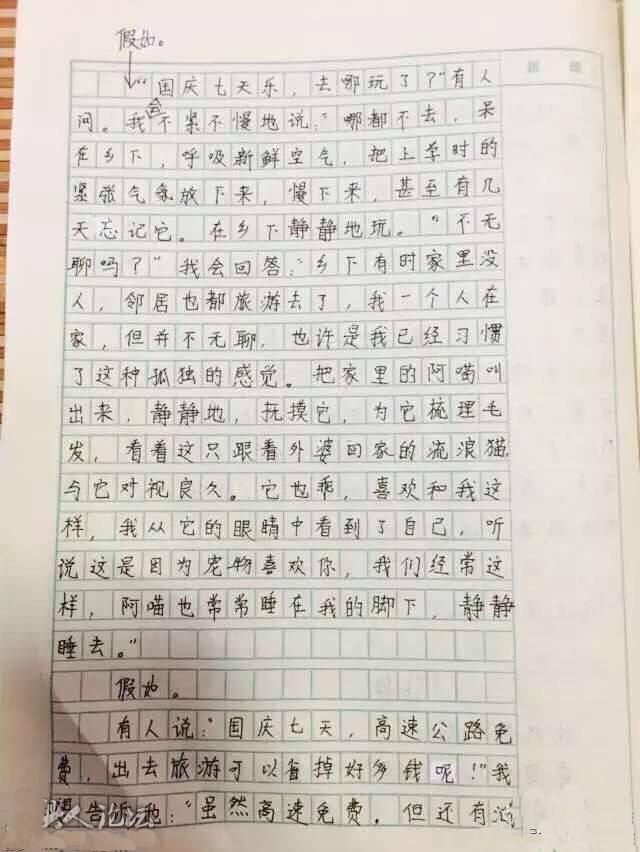 假如。
“国庆七天乐，去哪玩了？”有人
问。我会不紧不慢地说：“哪都不去，呆
在乡下，呼吸新鲜空气，把上学时的
紧张气氛放下来，慢下来，甚至有几
天忘记它。在乡下静静地玩。“不无
聊吗？”我会回答：“乡下有时家里没
人，邻居也都旅游去了，我一个人在
家，但并不无聊，也许是我已经习惯
了这种孤独的感觉。把家里的阿喵叫
出来，静静地，抚摸它，为它梳理毛
发，看着这只跟着外婆回家的流浪猫，
与它对视良久。它也乖，喜欢和我这
样，我从它的眼睛中看到了自己，听
说这是因为宠物喜欢你，我们经常这
样，阿喵也常常睡在我的脚下，静静
睡去。”
假如。
有人说：“国庆七天，高速公路免
费，出去旅游可以省掉好多钱呢！”我
告诉他：“虽然高速免费，但还有
人论坛
3.